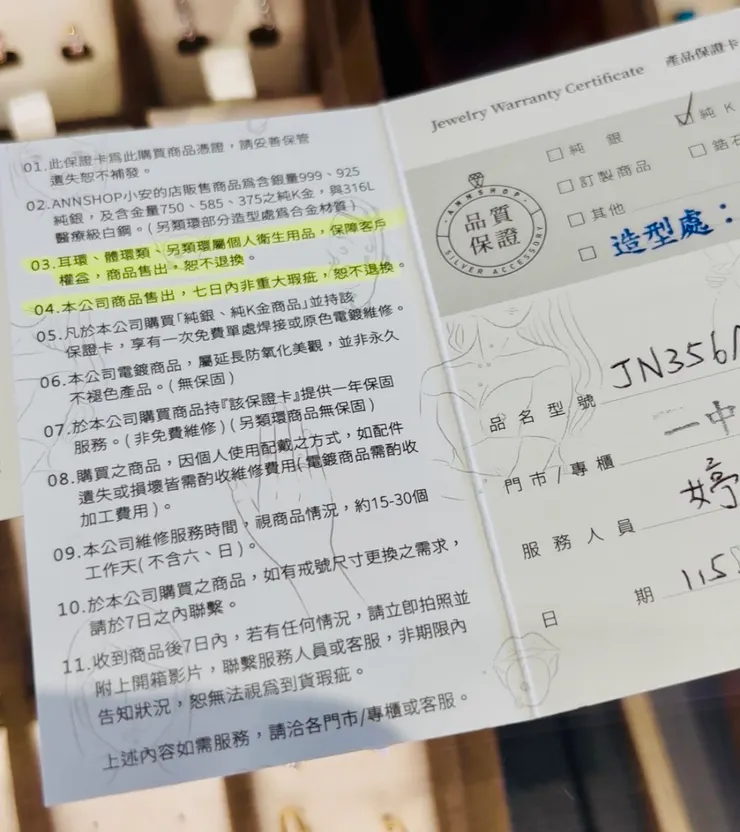 01.此保證卡爲此購買商品憑證，請妥善保管
遺失恕不補發。
02.ANNSHOP小安的店販售商品爲含銀量999、925
純銀，及含金量750、585、375之純K金，與316L
醫療級白鋼。(另類環部分造型處爲合金材質)
03.耳環、體環類、另類環屬個人衛生用品，保障客戶
權益，商品售出，恕不退換。
04.本公司商品售出，七日內非重大瑕疵，恕不退換。
05.凡於本公司購買「純銀、純K金商品」並持該
保證卡，享有一次免費單處焊接或原色電鍍維修。
06.本公司電鍍商品，屬延長防氧化美觀，並非永久
不褪色產品。(無保固)
07.於本公司購買商品持『該保證卡』提供一年保固
服務。(非免費維修)(另類環商品無保固)
08.購買之商品，因個人使用配戴之方式，如配件
遺失或損壞皆需酌收維修費用(電鍍商品需酌收
加工費用)。
09.本公司維修服務時間，視商品情況，約15-30個
工作天(不含六、日)。
10.於本公司購買之商品，如有戒號尺寸更換之需求，
請於7日之內聯繫。
11.收到商品後7日內，若有任何情況，請立即拍照並
附上開箱影片，聯繫服務人員或客服，非期限內
告知狀況，恕無法視爲到貨瑕疵。
上述內容如需服務，請洽各門市/專櫃或客服。
Jewelry Warranty Certificate 產品保證卡
ANNSHOP
品質
保證
SILVER ACCESSORY
純銀
純K
訂製商品
鋯石
其他
造型處：
品名型號 JN356
門市/專櫃 一中
服務人員 婷
日期 115